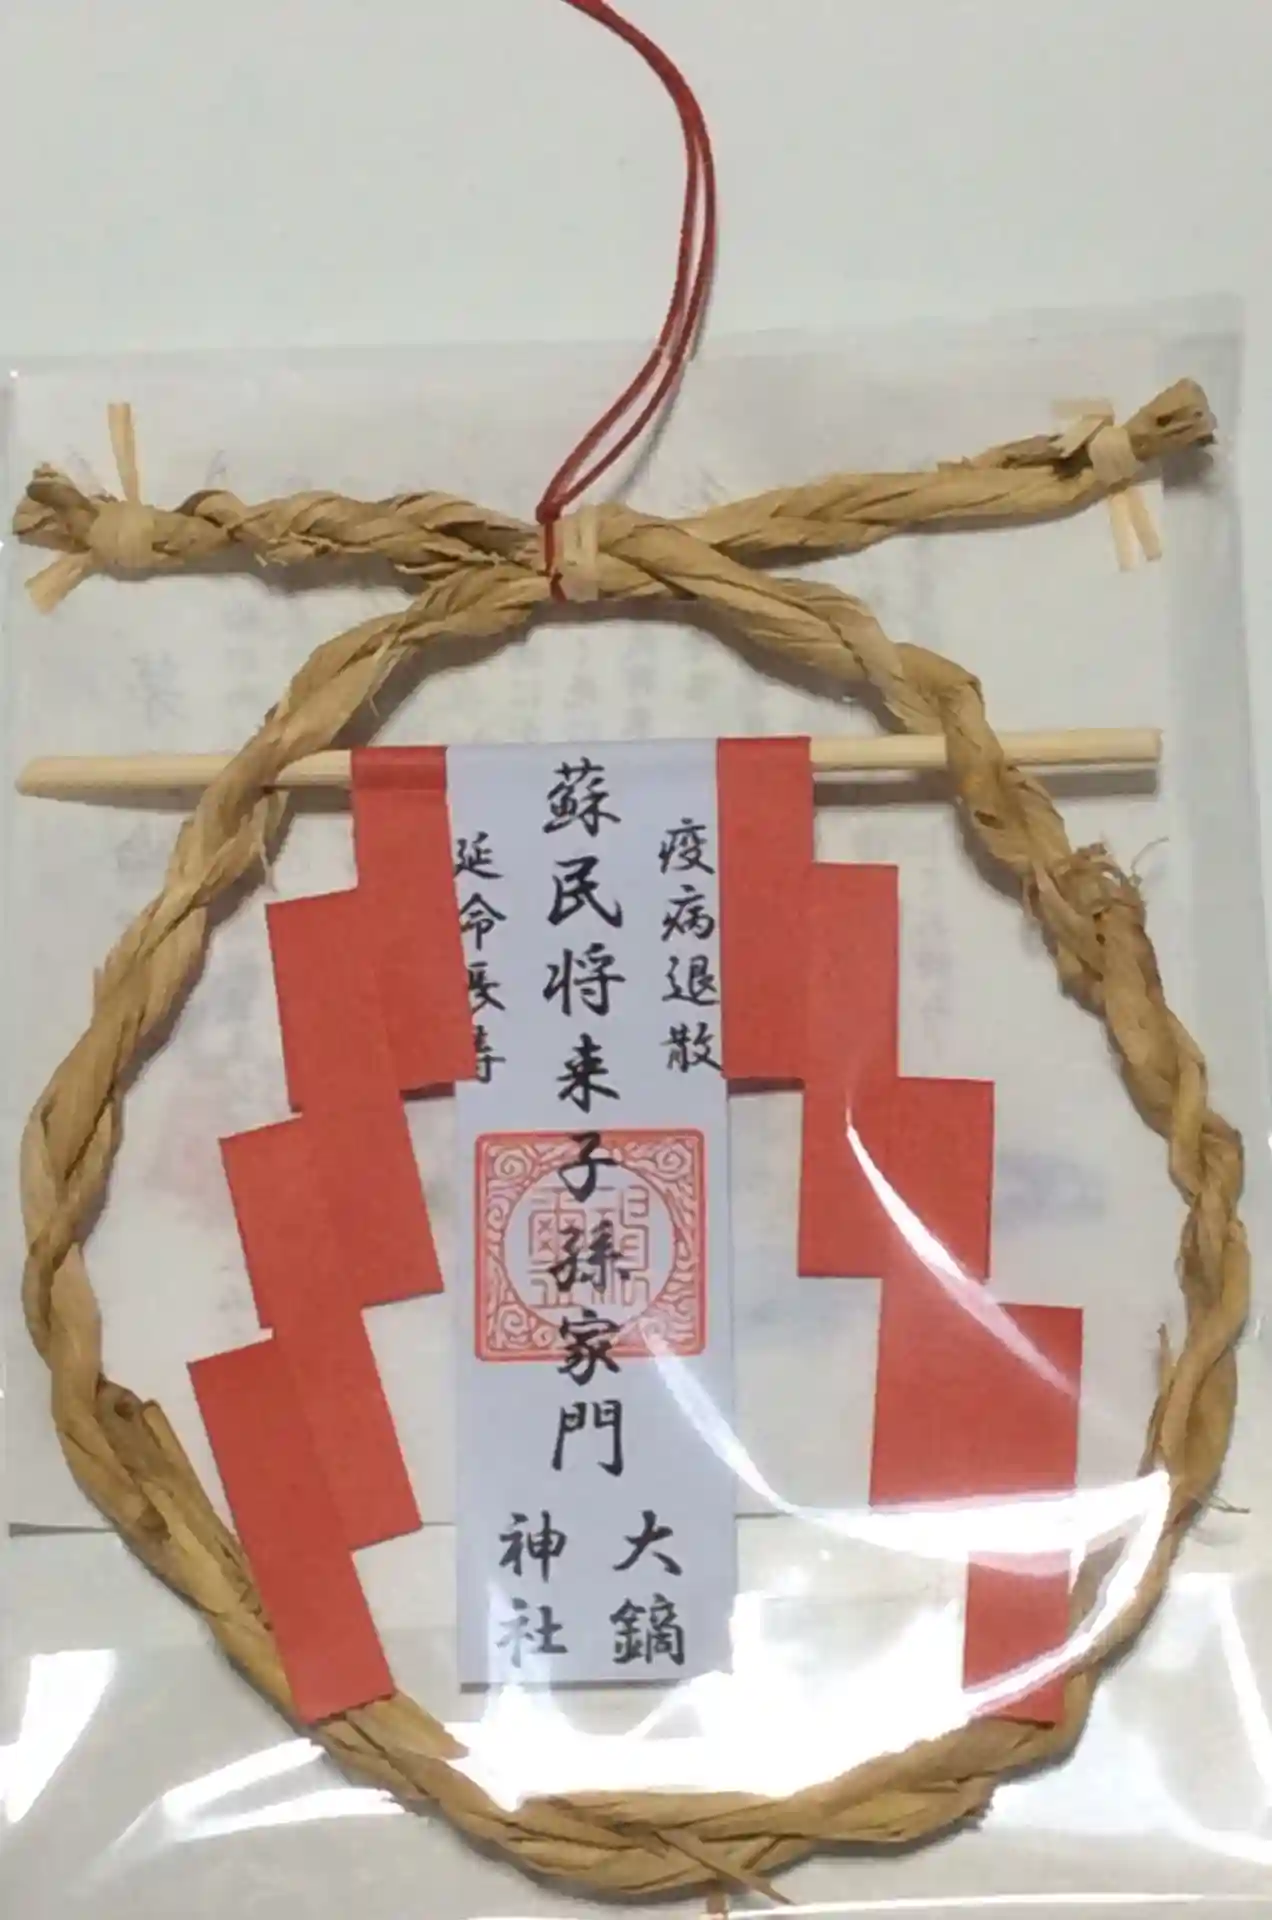 疫病退散
蘇民将来子孫家門
延命長寿
大鏑
神社